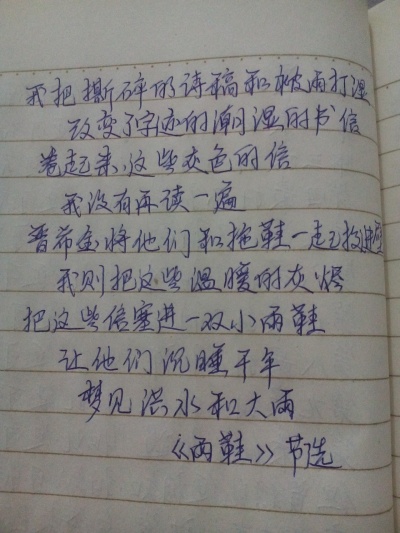 我把撕碎的诗稿和被雨打湿
改变了字迹的潮湿的书信
卷起来,这些灰色的信
我没有再读一遍
普希金将她们和拖鞋一起投进壁
我则把这些温暖的灰烬
把这些信塞进一双小雨鞋
让他们沉睡千年
梦见洪水和大雨
《雨鞋》节选